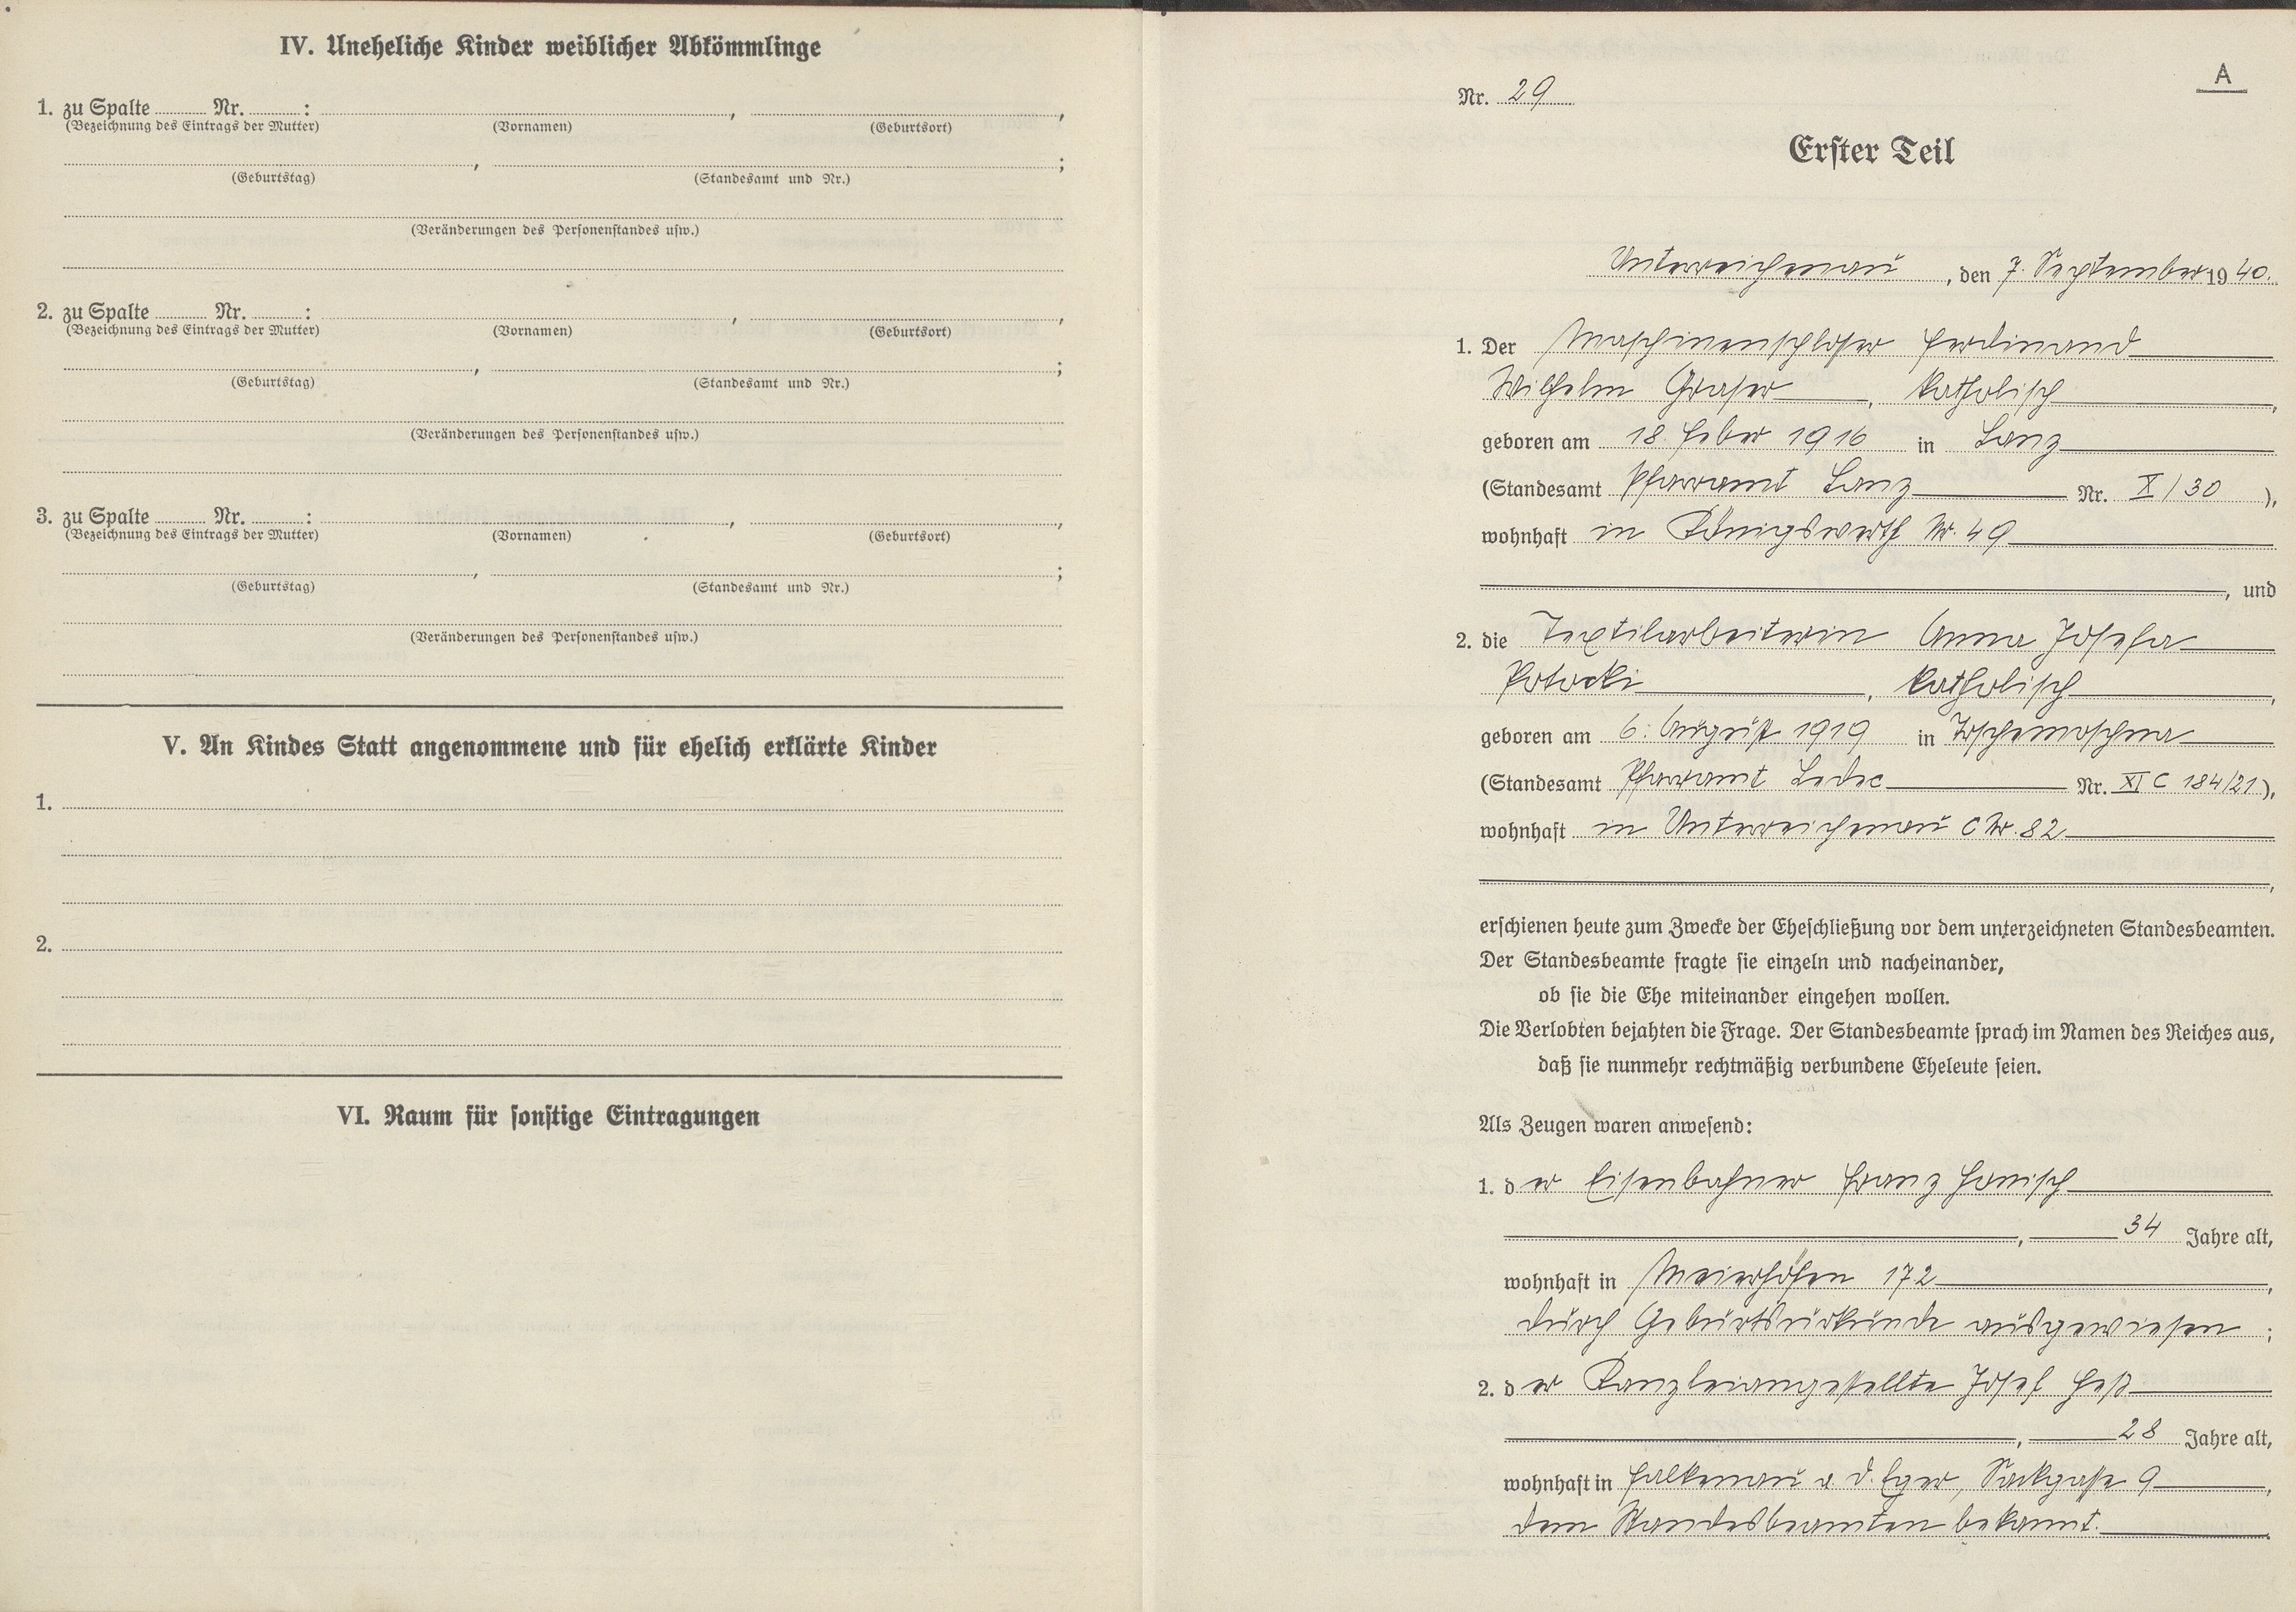 IV. Uneheliche Kinder weiblicher Abkömmlinge
1. zu Spalte ........ Nr. ........ :
(Bezeichnung des Eintrags der Mutter) (Vornamen) (Geburtsort)
, ;
(Geburtstag) (Standesamt und Nr.)
(Veränderungen des Personenstandes usw.)
2. zu Spalte ........ Nr. ........ :
(Bezeichnung des Eintrags der Mutter) (Vornamen) (Geburtsort)
, ;
(Geburtstag) (Standesamt und Nr.)
(Veränderungen des Personenstandes usw.)
3. zu Spalte ........ Nr. ........ :
(Bezeichnung des Eintrags der Mutter) (Vornamen) (Geburtsort)
, ;
(Geburtstag) (Standesamt und Nr.)
(Veränderungen des Personenstandes usw.)
V. An Kindes Statt angenommene und für ehelich erklärte Kinder
1.
2.
VI. Raum für sonstige Eintragungen
A
Nr. 29
Erster Teil
Unterreichenau, den 7. September 1940.
1. Der Maschinenschlosser Ferdinand
Wilhelm Graser, katholisch,
geboren am 18. Feber 1916 in Lanz
(Standesamt Pfarramt Lanz Nr. X/30),
wohnhaft in Königswerth Nr. 49
, und
2. die Textilarbeiterin Anna Josefa
Potocki, katholisch,
geboren am 6. August 1919 in
(Standesamt Pfarramt Ledec Nr. XI C 184/21),
wohnhaft in Unterreichenau C Nr. 82
,
erschienen heute zum Zwecke der Eheschließung vor dem unterzeichneten Standesbeamten.
Der Standesbeamte fragte sie einzeln und nacheinander,
ob sie die Ehe miteinander eingehen wollen.
Die Verlobten bejahten die Frage. Der Standesbeamte sprach im Namen des Reiches aus,
daß sie nunmehr rechtmäßig verbundene Eheleute seien.
Als Zeugen waren anwesend:
1. der Eisenbahner Franz Hanisch
, 34 Jahre alt,
wohnhaft in Meierhöfen 172,
durch Geburtsurkunde ausgewiesen;
2. der Kanzleiangestellte Josef Heß
, 28 Jahre alt,
wohnhaft in Falkenau a. d. Eger, Sackgasse 9,
dem Standesbeamten bekannt.